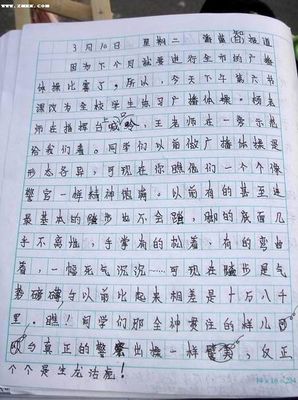 www.zmxm.com
3月10日 星期二
因为下个月就要进行全市的广播
体操比赛了。所以，今天下午第六节
课改为全校学生练习广播体操。杨老
师在指挥台上喊口令，王老师在一旁示范
给我们看。同学们以前做广播体操是
形态各异，可现在你瞧他们一个个像
警官一样精神饱满。以前有的甚至连
最基本的踏步也不会踏，脚的底面几
乎不离地，手掌有的松着，有的弯曲
着，一幅死气沉沉……可现在踏步是气
势磅礴与以前比起来相差是十万八千
里。瞧！同学们那全神贯注的样儿
真正的警察出操一样
个个是生龙活虎！